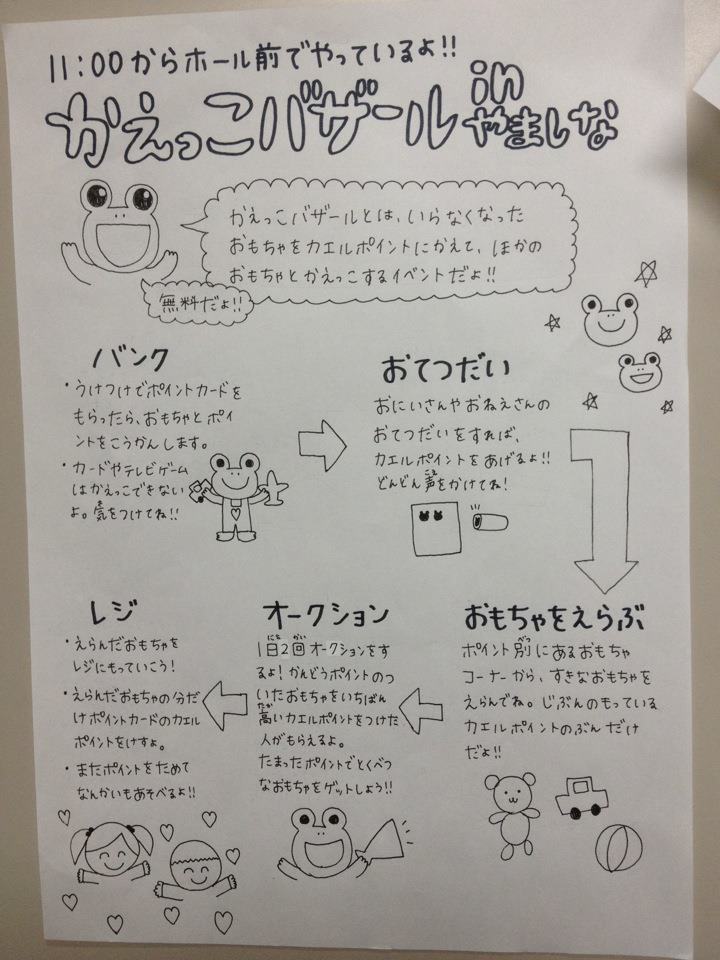 11:00からホール前でやっているよ!!
かえっこバザール in やましな
かえっこバザールとは、いらなくなった
おもちゃをカエルポイントにかえて、ほかの
おもちゃとかえっこするイベントだよ!!
無料だよ!!
バンク
・うけつけでポイントカードを
もらったら、おもちゃとポイ
ントをこうかんします。
・カードやテレビゲーム
はかえっこできない
よ。気をつけてね!!
おてつだい
おにいさんやおねえさんの
おてつだいをすれば、
カエルポイントをあげるよ!!
どんどん声をかけてね!
おもちゃをえらぶ
ポイント別にあるおもちゃ
コーナーから、すきなおもちゃを
えらんでね。じぶんのもっている
カエルポイントのぶんだけ
だよ!!
オークション
1日2回オークションをす
るよ!かんどうポイントのつ
いたおもちゃをいちばん
高いカエルポイントをつけた
人がもらえるよ。
たまったポイントでとくべつ
なおもちゃをゲットしよう!!
レジ
・えらんだおもちゃを
レジにもっていこう!
・えらんだおもちゃの分だ
けポイントカードのカエル
ポイントをけすよ。
・またポイントをためて
なんかいもあそべるよ!!